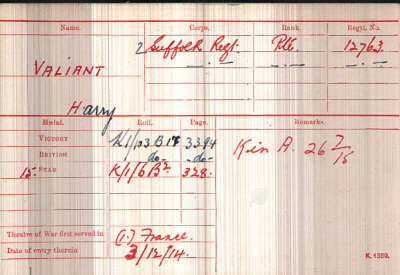 Name. Corps. Rank. Regtl. No.
2 Suffolk Regt. Pte. 12763
VALIANT
Harry
Medal. Roll. Page. Remarks.
VICTORY K/1/103 B17 3394
BRITISH -do- -do-
15 STAR K/1/6 B2 328.
Kin A. 26 7/15
Theatre of War first served in (1.) France.
Date of entry therein 3/12/14.
K. 1380.